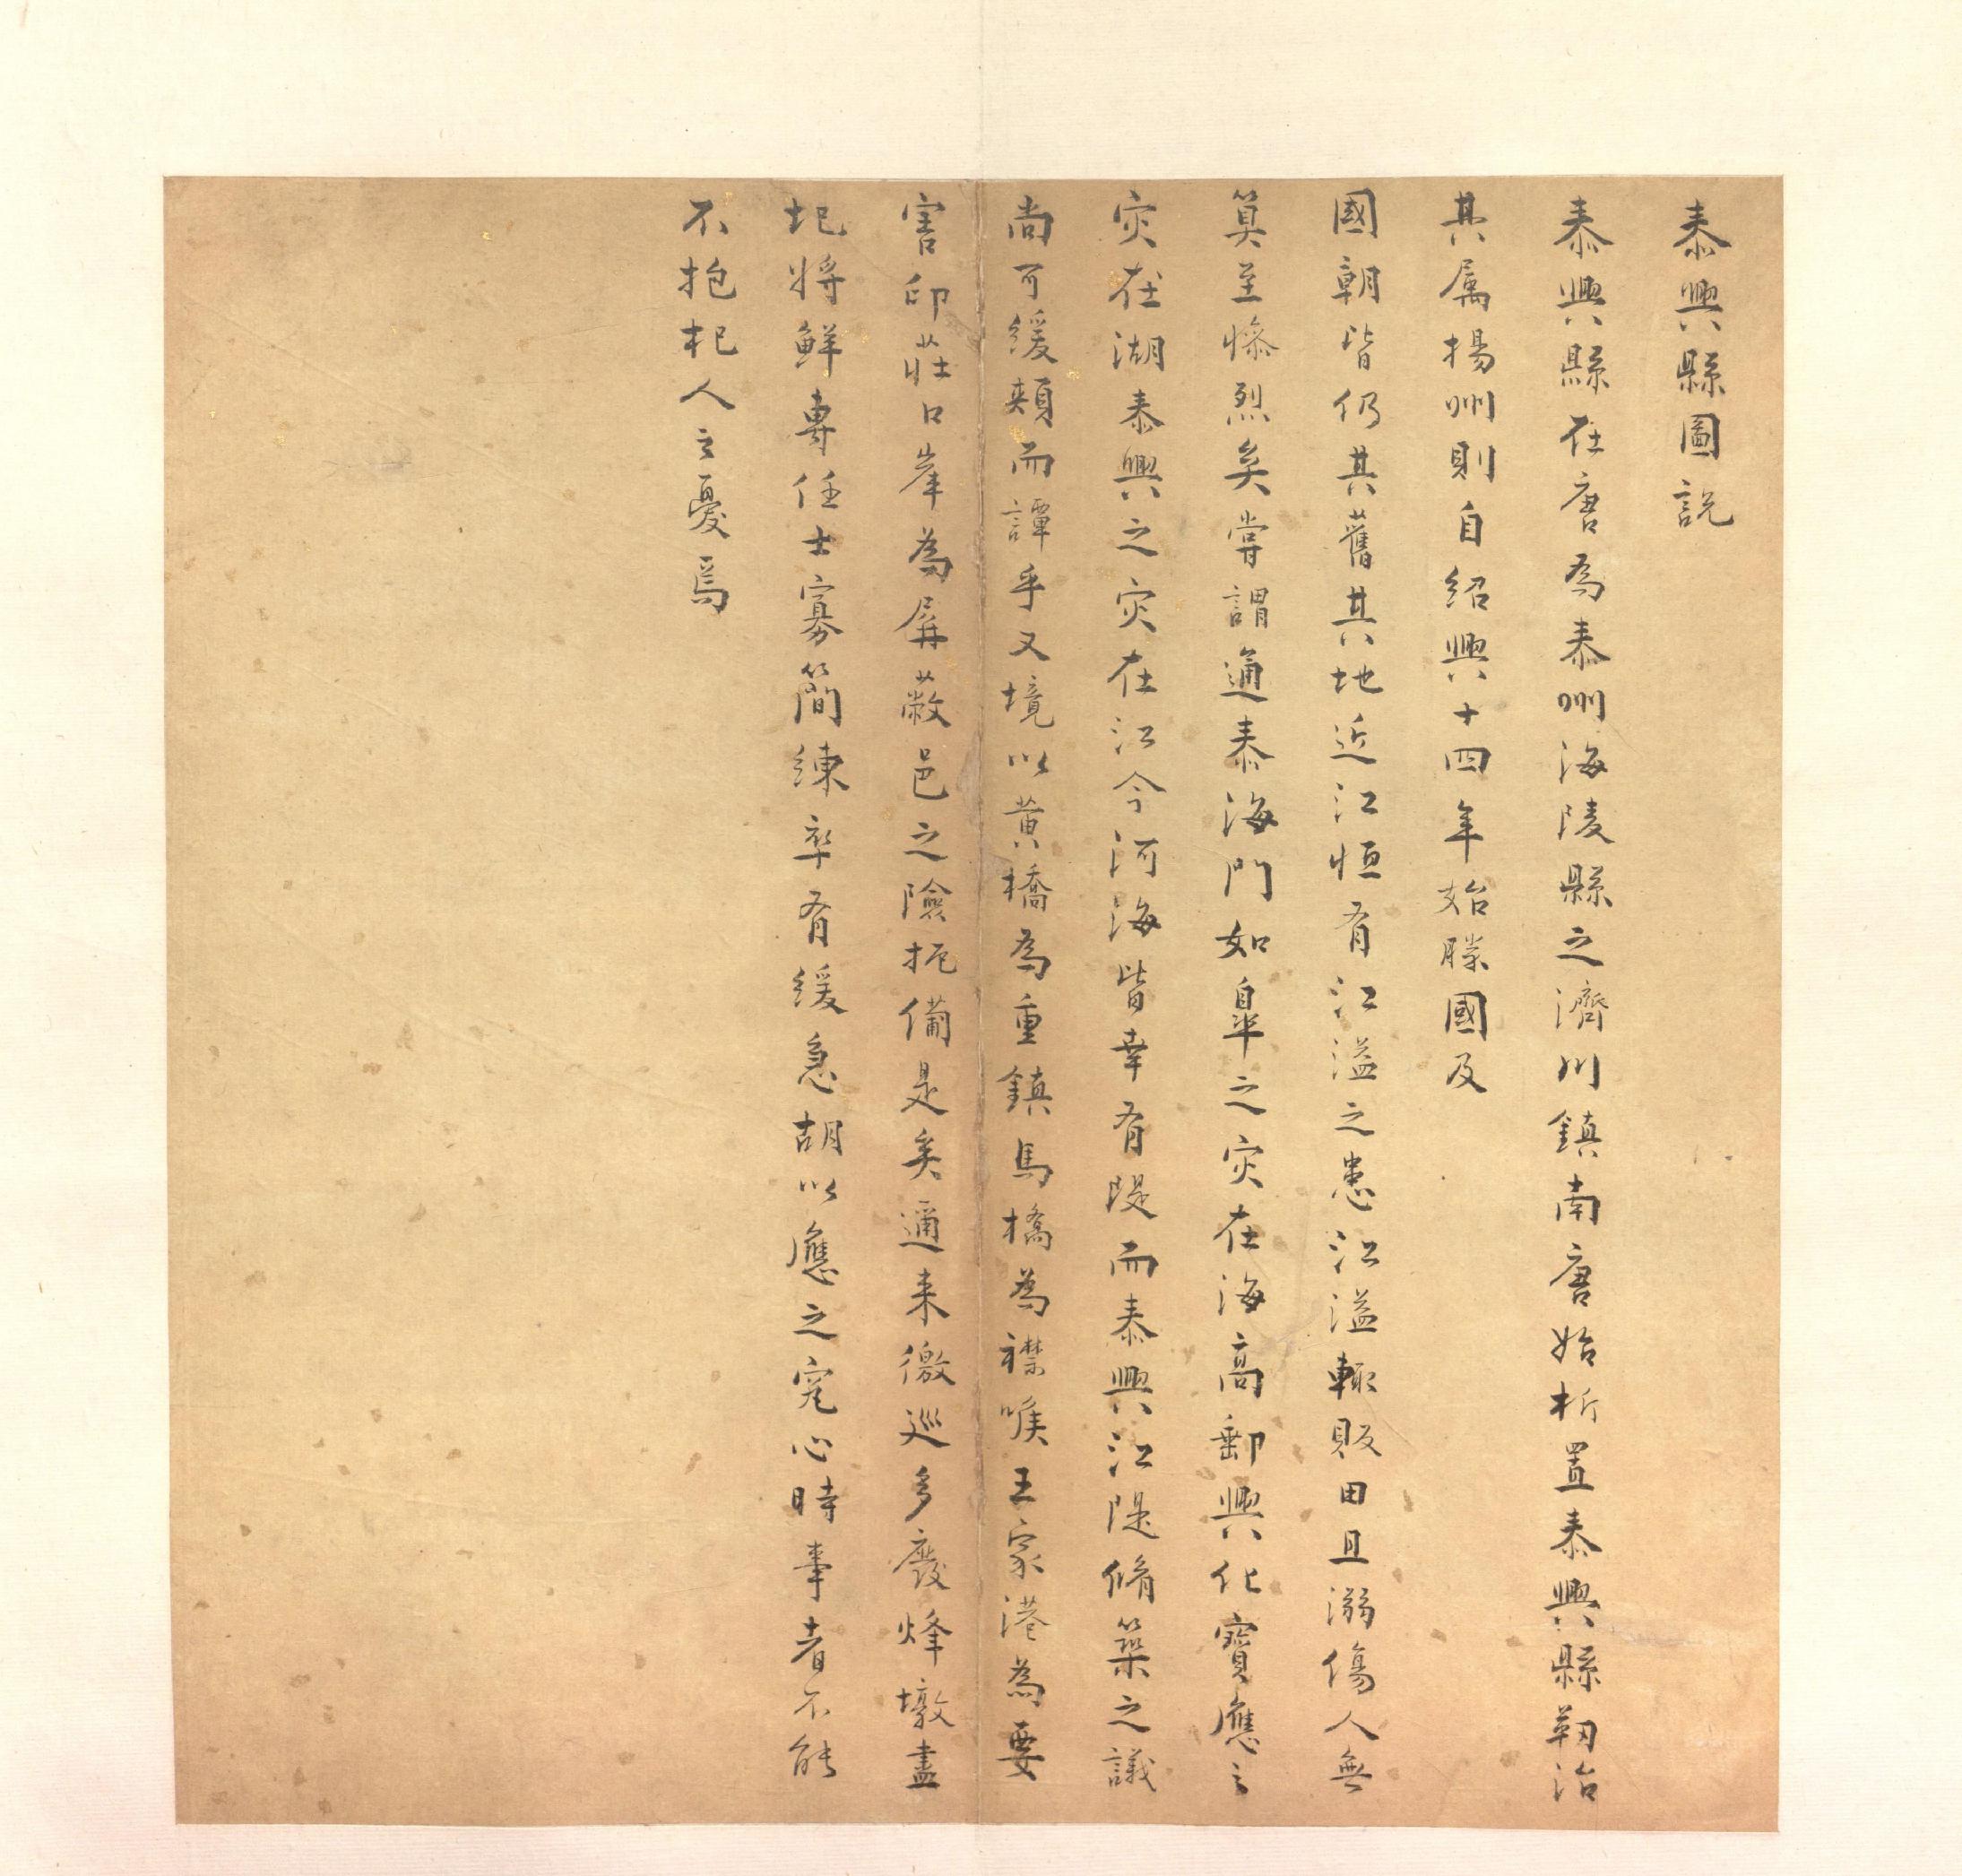 泰興縣圖說
泰興縣在唐為泰州海陵縣之濟川鎮南唐始析置泰興縣剏治
其属揚州則自紹興十四年始勝國及
國朝皆仍其舊其地近江恒有江溢之患江溢輙敗田且溺傷人無
筭至慘烈矣嘗謂通泰海門如臯之灾在海高郵興化寶應之
灾在湖泰興之灾在江今河海皆幸有隄而泰興江隄脩築之議
尚可緩頰而譚乎又境以黄橋為重鎮馬橋為襟喉王家港為要
害印莊口岸為屏蔽邑之險扼備是矣邇来徼巡多廢烽墩盡
圮將鮮專任士寡簡練卒有緩急胡以應之究心時事者不能
不抱杞人之憂焉